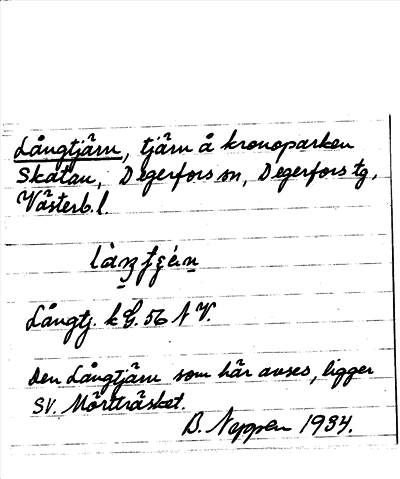 Långtjärn, tjärn å kronoparken
Skatan, Degerfors sn, Degerfors tg,
Västerb. l.
Långtj. k G. 56 NV.
Den Långtjärn som här avses, ligger
SV. Mörtträsket.
B. Neppen 1934.